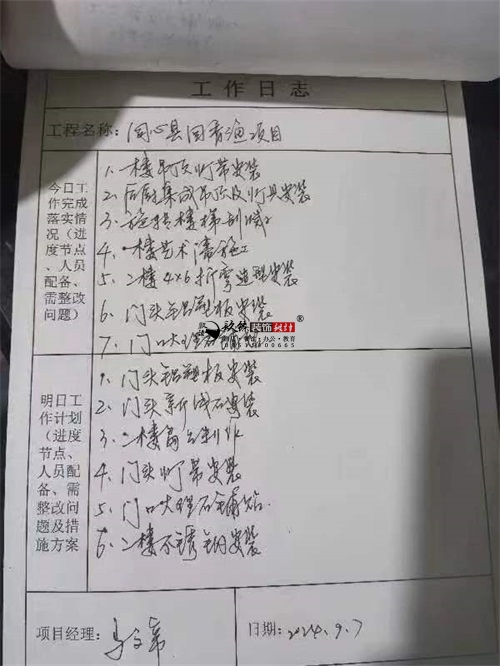 工作日志
工程名称: 同心县回香渔项目
今日工作完成落实情况(进度节点、人员配备、需整改问题)
1. 一楼吊顶灯带安装
2. 后厨集成吊顶及灯具安装
3. 旋转楼梯
4. 一楼艺术漆施工
5. 二楼4×6折弯造型安装
6. 门头铝塑板安装
7. 门口大理石
装饰设计®
办公·教育
明日工作计划(进度节点、人员配备、需整改问题及措施方案
1. 门头铝塑板安装
2. 门头 石安装
3. 二楼
4. 门头灯带安装
5. 门口大理石铺贴
6. 二楼不锈钢安装
项目经理:
日期: 2024.9.7